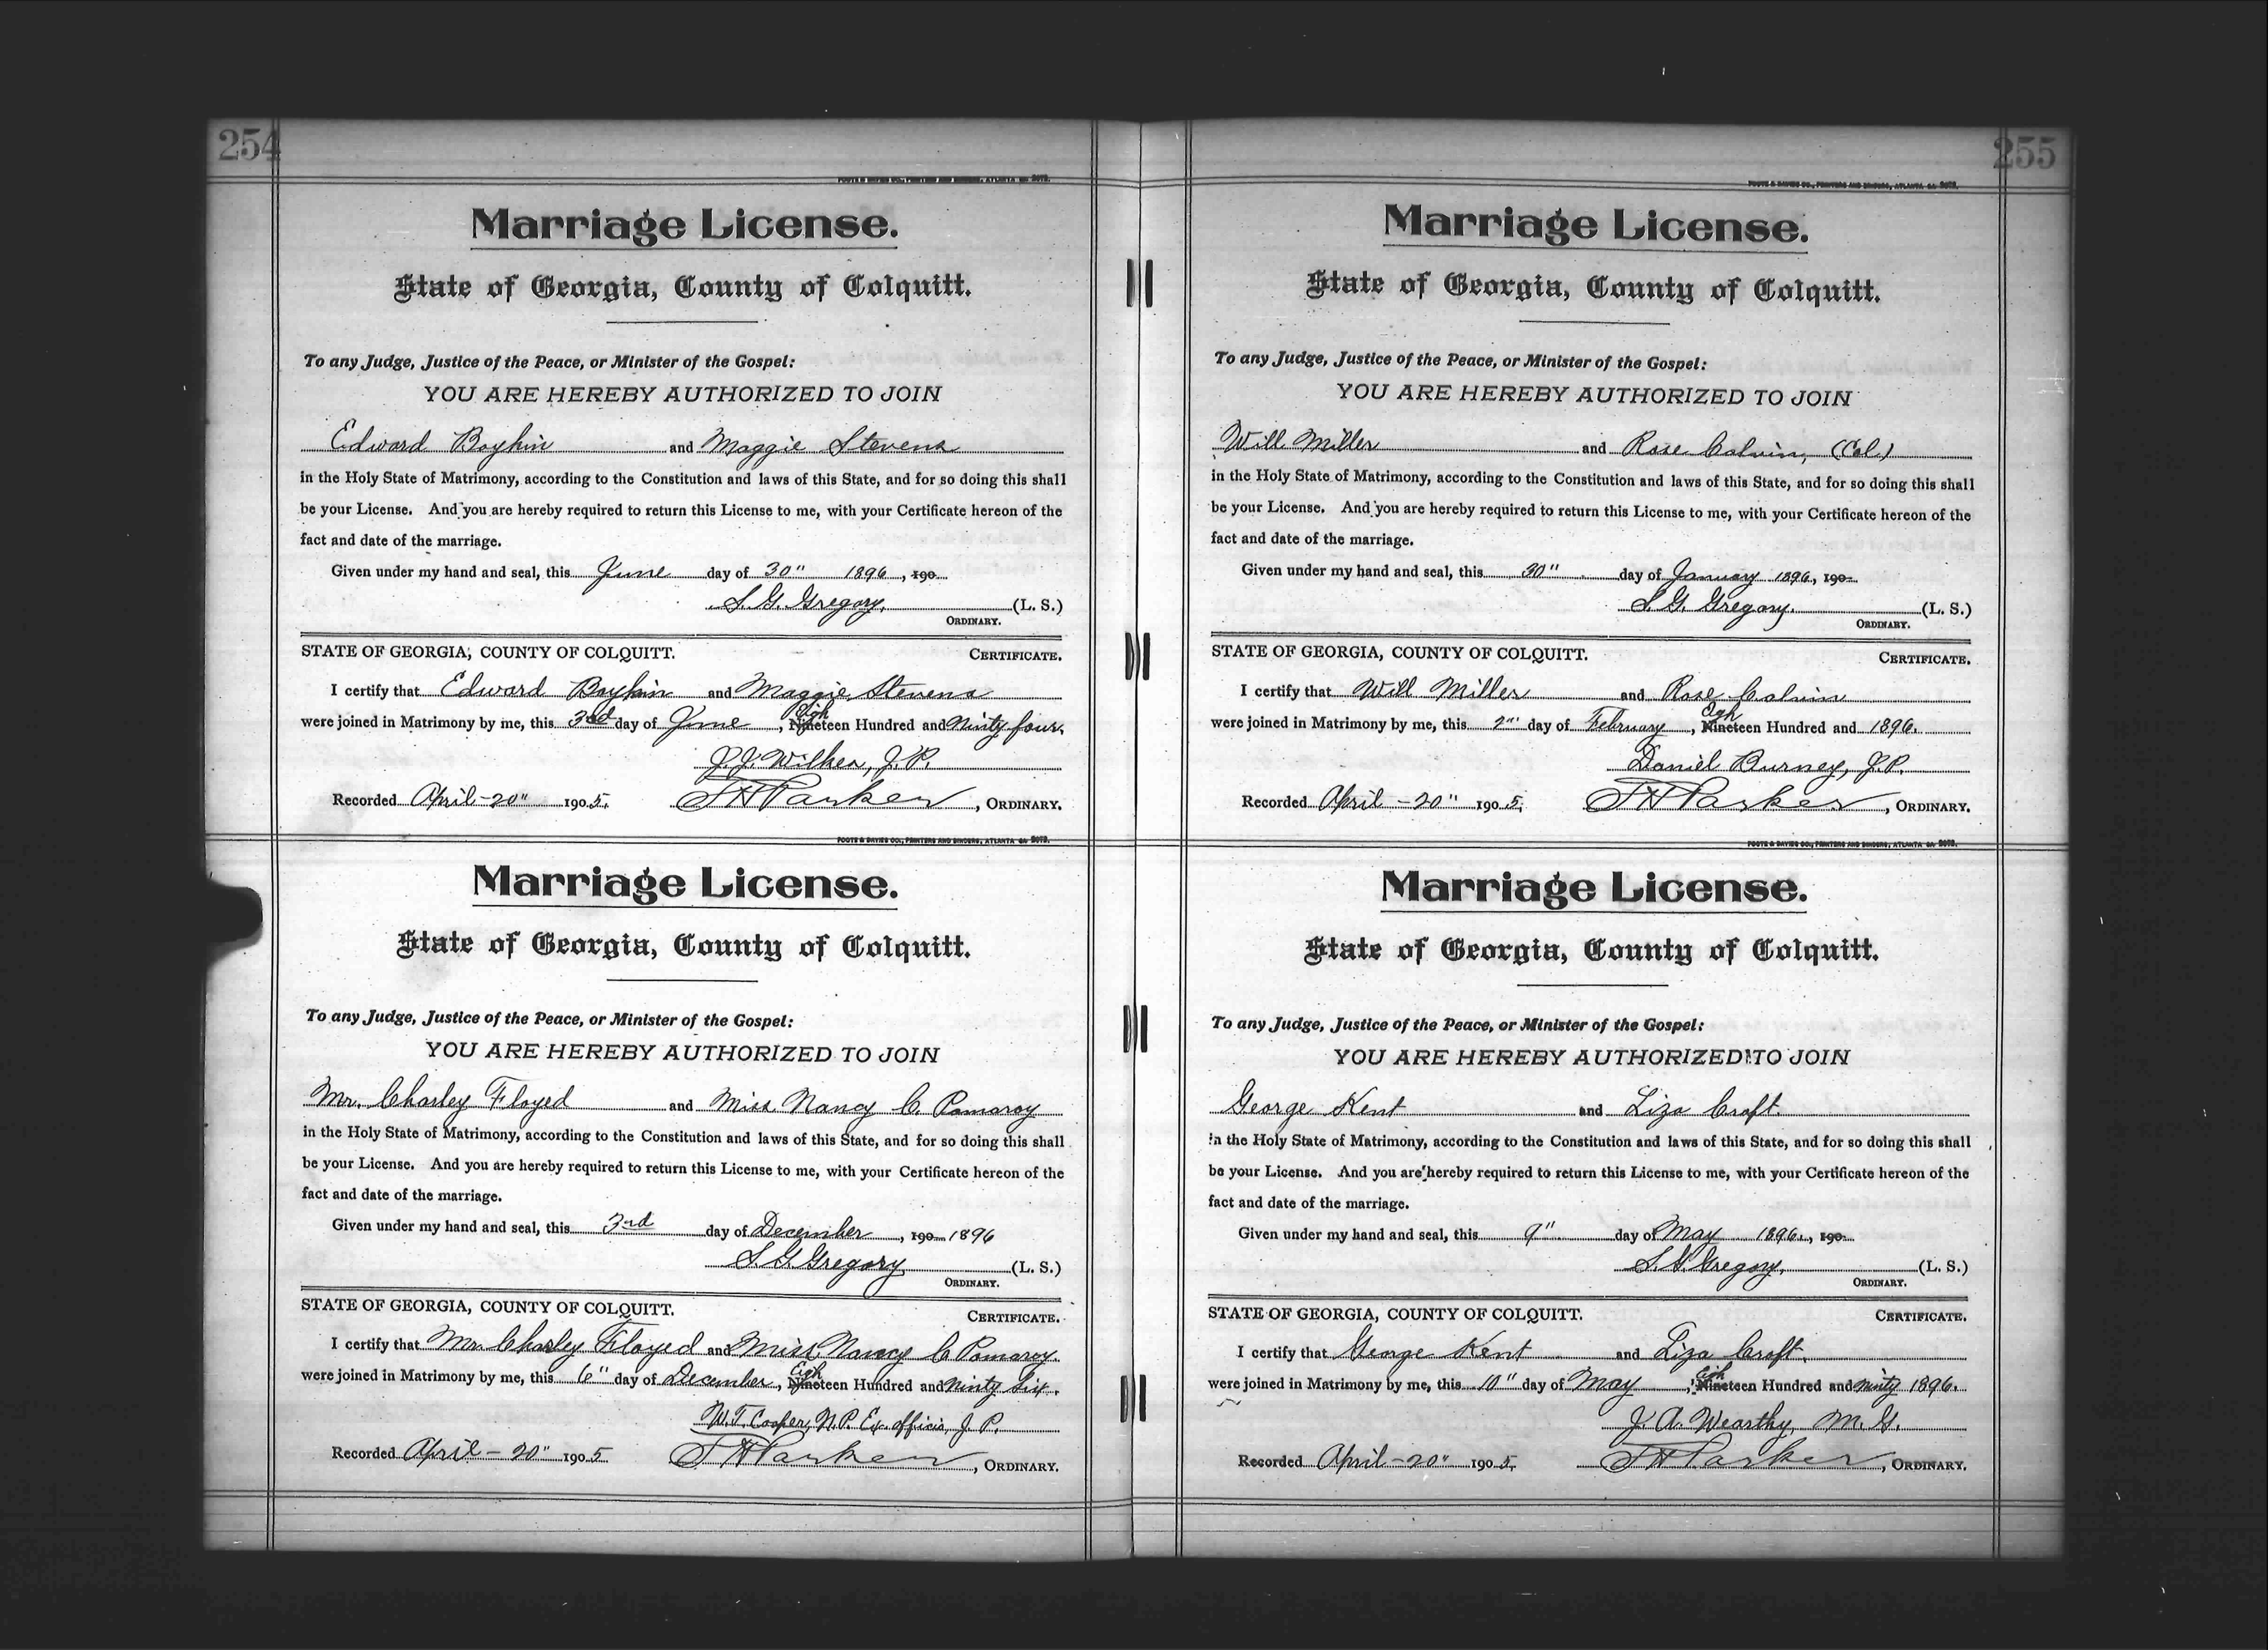 254
FOOTE & DAVIES CO., PRINTERS AND BINDERS, ATLANTA GA 2072.
Marriage License.
State of Georgia, County of Colquitt.
To any Judge, Justice of the Peace, or Minister of the Gospel:
YOU ARE HEREBY AUTHORIZED TO JOIN
Edward Boykin and Maggie Stevens
in the Holy State of Matrimony, according to the Constitution and laws of this State, and for so doing this shall
be your License. And you are hereby required to return this License to me, with your Certificate hereon of the
fact and date of the marriage.
Given under my hand and seal, this June day of 30" 1896, 190
S. G. Gregory. (L. S.)
ORDINARY.
STATE OF GEORGIA, COUNTY OF COLQUITT. CERTIFICATE.
I certify that Edward Boykin and Maggie Stevens
were joined in Matrimony by me, this 3rd day of June, Eigh Nineteen Hundred and Ninty four.
J. J. Wilkes, J. P.
Recorded April - 20" 1905. , ORDINARY.
FOOTE & DAVIES CO., PRINTERS AND BINDERS, ATLANTA GA 2072.
Marriage License.
State of Georgia, County of Colquitt.
To any Judge, Justice of the Peace, or Minister of the Gospel:
YOU ARE HEREBY AUTHORIZED TO JOIN
Mr. Charley Floyed and Miss Nancy C. Pomaroy
in the Holy State of Matrimony, according to the Constitution and laws of this State, and for so doing this shall
be your License. And you are hereby required to return this License to me, with your Certificate hereon of the
fact and date of the marriage.
Given under my hand and seal, this 3rd day of December, 190 1896
S. G. Gregory (L. S.)
ORDINARY.
STATE OF GEORGIA, COUNTY OF COLQUITT. CERTIFICATE.
I certify that Mr. Charley Floyed and Miss Nancy C Pomaroy.
were joined in Matrimony by me, this 6" day of December, Eigh Nineteen Hundred and Ninty Six.
W. T. Cooper, N. P. Ex officio, J. P.
Recorded April - 20" 1905 Parker, ORDINARY.
255
FOOTE & DAVIES CO., PRINTERS AND BINDERS, ATLANTA GA 2072.
Marriage License.
State of Georgia, County of Colquitt.
To any Judge, Justice of the Peace, or Minister of the Gospel:
YOU ARE HEREBY AUTHORIZED TO JOIN
Will Miller and Rose Calvin, (Col.)
in the Holy State of Matrimony, according to the Constitution and laws of this State, and for so doing this shall
be your License. And you are hereby required to return this License to me, with your Certificate hereon of the
fact and date of the marriage.
Given under my hand and seal, this 30" day of January 1896, 190
S. G. Gregory. (L. S.)
ORDINARY.
STATE OF GEORGIA, COUNTY OF COLQUITT. CERTIFICATE.
I certify that Will Miller and Rose Calvin
were joined in Matrimony by me, this 2" day of February, Eigh Nineteen Hundred and 1896.
Daniel Burney, J. P.
Recorded April - 20" 1905. Parker, ORDINARY.
FOOTE & DAVIES CO., PRINTERS AND BINDERS, ATLANTA GA 2072.
Marriage License.
State of Georgia, County of Colquitt.
To any Judge, Justice of the Peace, or Minister of the Gospel:
YOU ARE HEREBY AUTHORIZED TO JOIN
George Kent and Liza Croft.
in the Holy State of Matrimony, according to the Constitution and laws of this State, and for so doing this shall
be your License. And you are hereby required to return this License to me, with your Certificate hereon of the
fact and date of the marriage.
Given under my hand and seal, this 9" day of May 1896, 190
S. G. Gregory. (L. S.)
ORDINARY.
STATE OF GEORGIA, COUNTY OF COLQUITT. CERTIFICATE.
I certify that George Kent and Liza Croft.
were joined in Matrimony by me, this 10" day of May, Eigh Nineteen Hundred and ninty 1896.
J. A. Wearthy, M. G.
Recorded April - 20" 1905. Parker, ORDINARY.